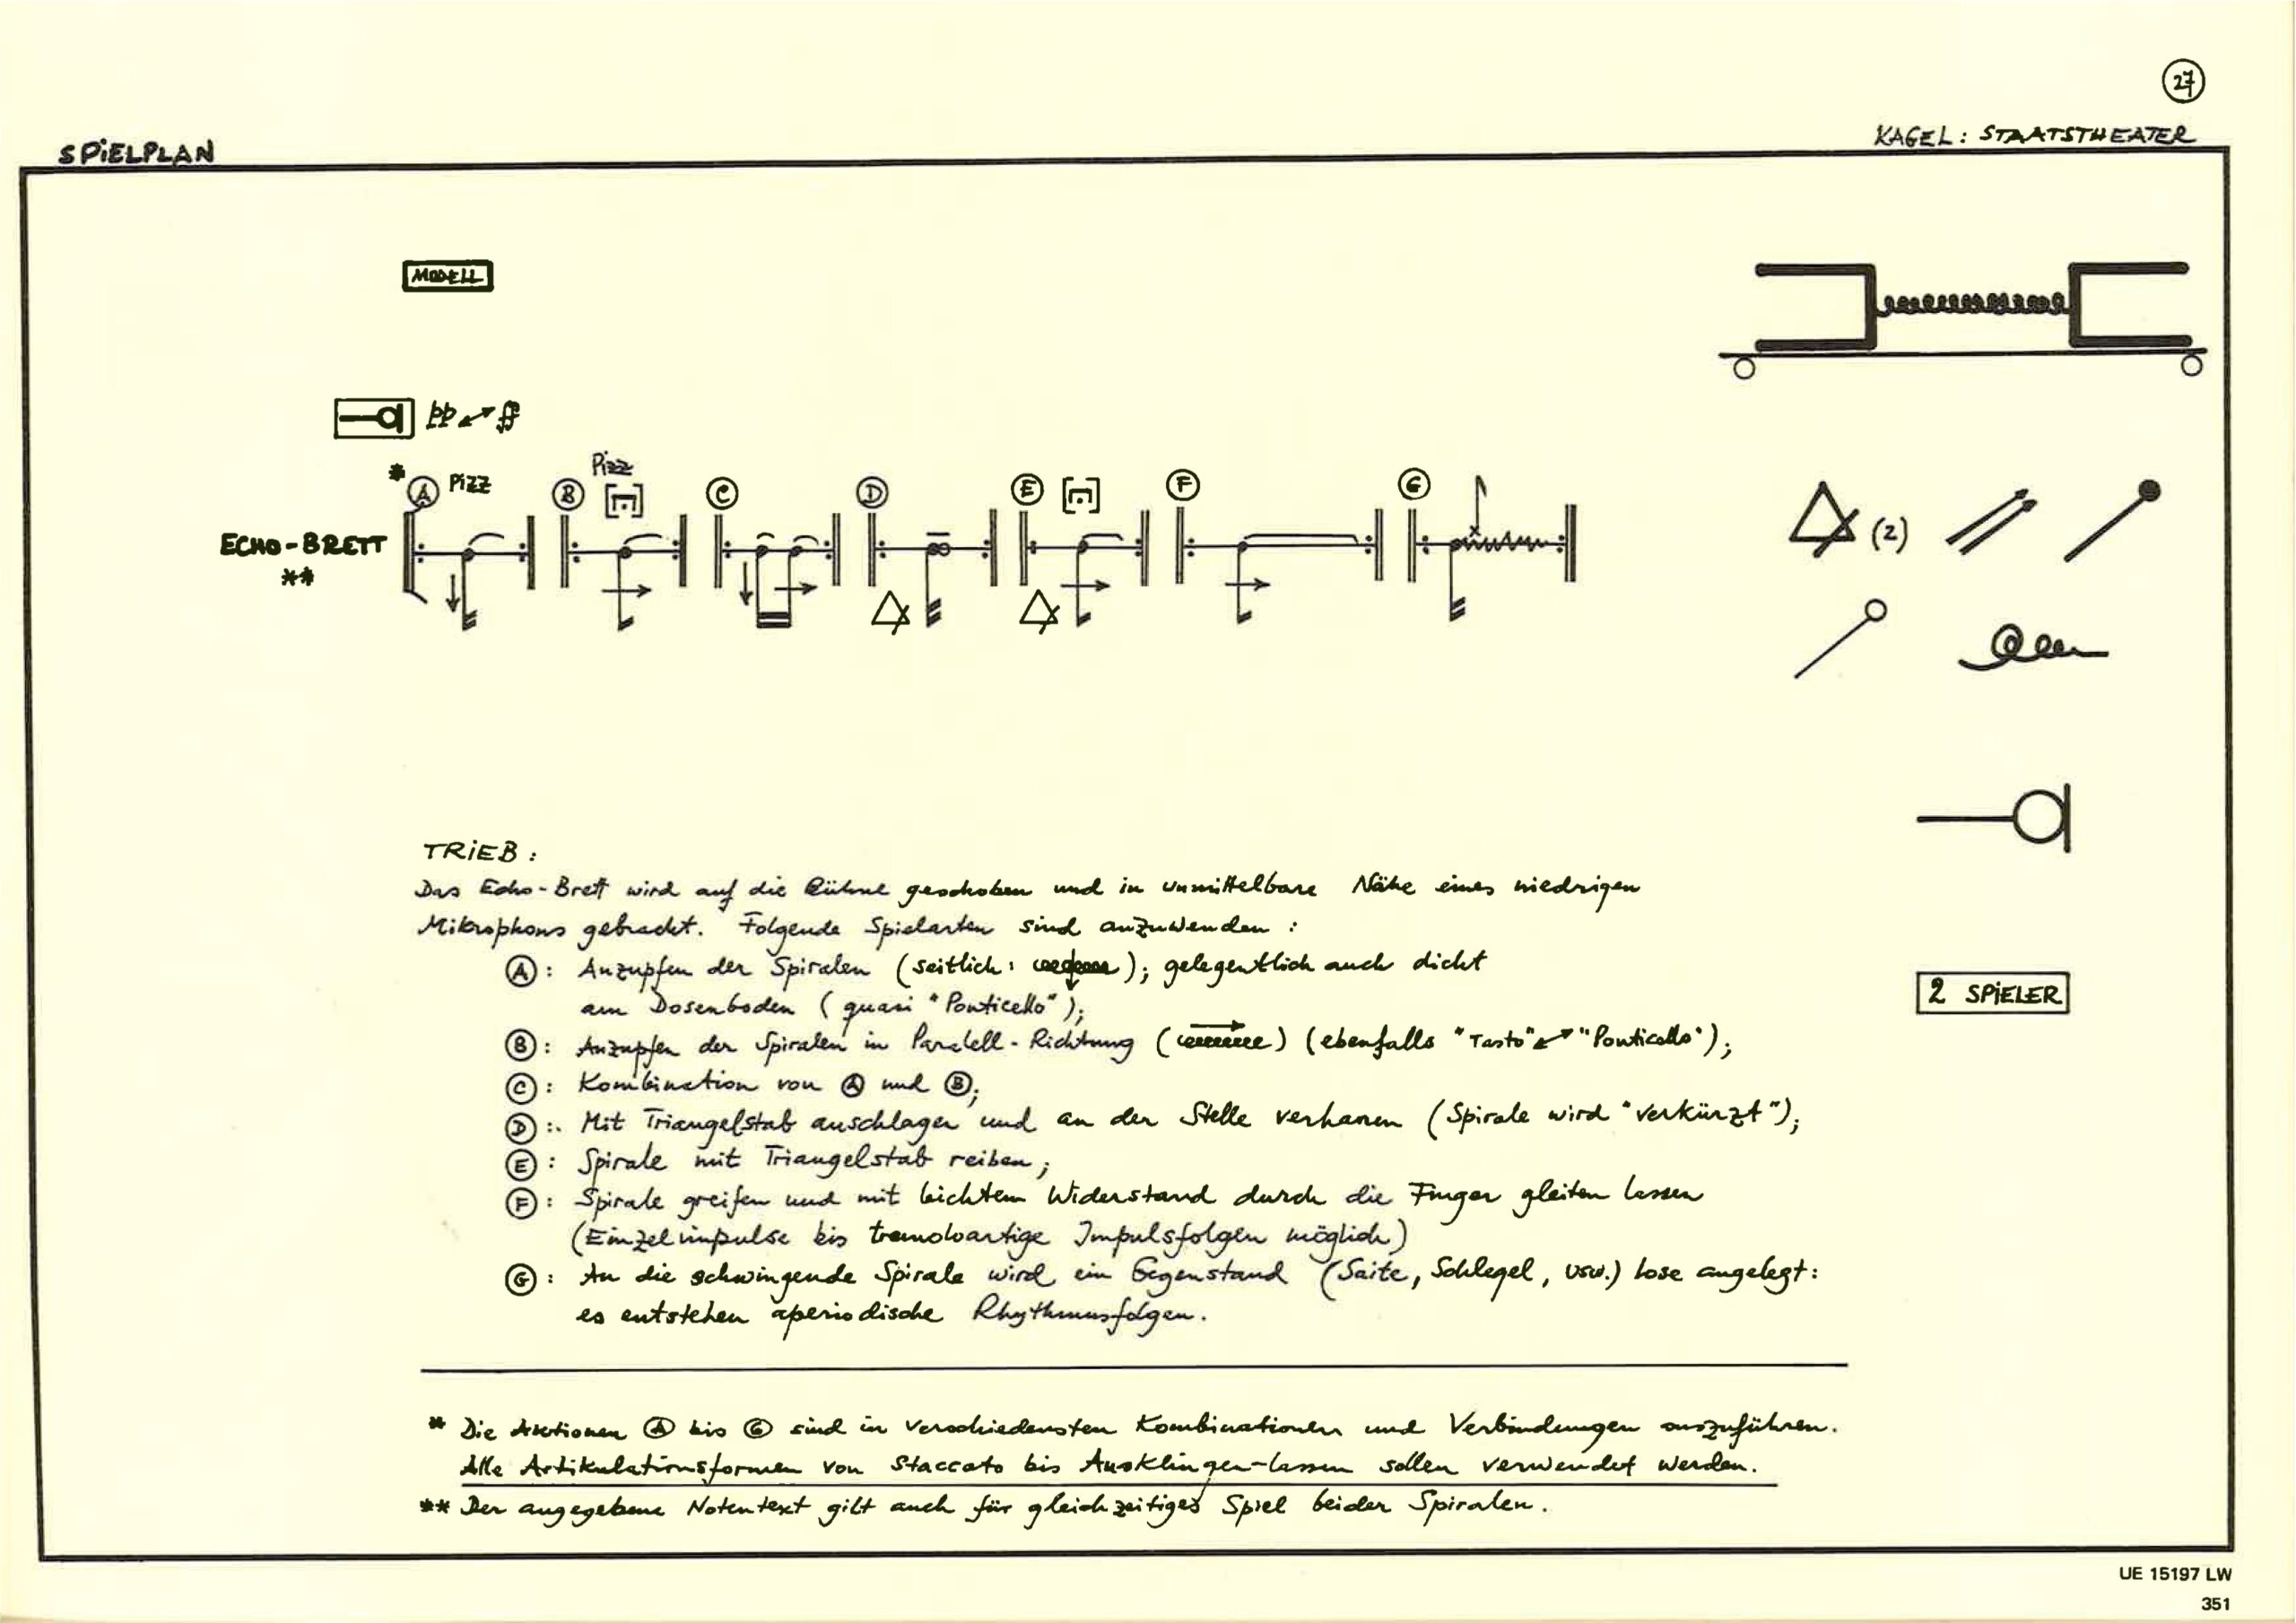 27
SPIELPLAN
KAGEL: STAATSTHEATER
MODELL
pp ff
* A Pizz B Pizz C D E F G
ECHO-BRETT
**
(2)
2 SPIELER
TRIEB:
Das Echo-Brett wird auf die Bühne geschoben und in unmittelbare Nähe eines niedrigen
Mikrophons gebracht. Folgende Spielarten sind anzuwenden:
A: Anzupfen der Spiralen (seitlich: ); gelegentlich auch dicht
am Dosenboden (quasi "Ponticello");
B: Anzupfen der Spiralen in Parallell-Richtung ( ) (ebenfalls "Tasto" "Ponticello");
C: Kombination von A und B;
D: Mit Triangelstab anschlagen und an der Stelle verharren (Spirale wird "verkürzt");
E: Spirale mit Triangelstab reiben;
F: Spirale greifen und mit leichtem Widerstand durch die Finger gleiten lassen
(Einzelimpulse bis tremoloartige Impulsfolgen möglich)
G: An die schwingende Spirale wird ein Gegenstand (Saite, Schlegel, usw.) lose angelegt:
es entstehen aperiodische Rhythmusfolgen.
* Die Aktionen A bis G sind in verschiedensten Kombinationen und Verbindungen auszuführen.
Alle Artikulationsformen von Staccato bis Ausklingen-lassen sollen verwendet werden.
** Der angegebene Notentext gilt auch für gleichzeitiges Spiel beider Spiralen.
UE 15197 LW
351